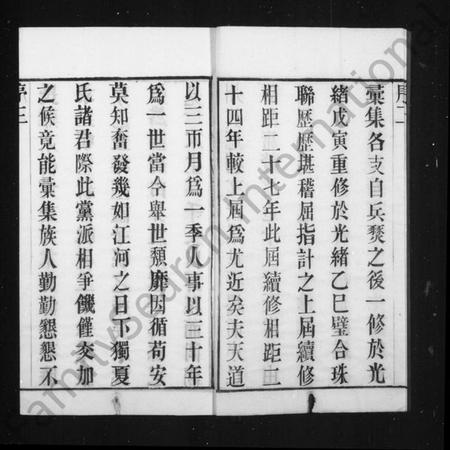 序二
彙集各支自兵燹之後一修於光
緒戊寅重修於光緒乙巳璧合珠
聯歷歷堪稽屈指計之上屆續修
相距二十七年此屆續修相距二
十四年較上屆爲尤近矣夫天道
以三冊月爲一季人事以三十年
爲一世當今舉世頽靡因循苟安
莫知奮發幾如江河之日下獨夏
氏諸君際此黨派相爭饑僅交加
之候竟能彙集族人勤勤懇懇不
序三